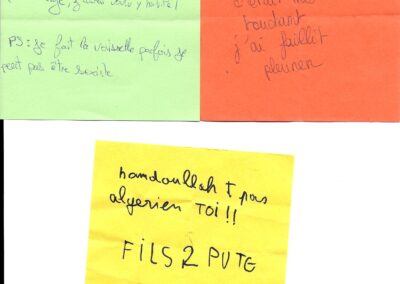 PS: je fait la vaisselle parfois je
peut pas être sexiste
touchant
j'ai faillit
pleurer
hamdoullah t pas
algerien TOI!!
FILS 2 PUTE